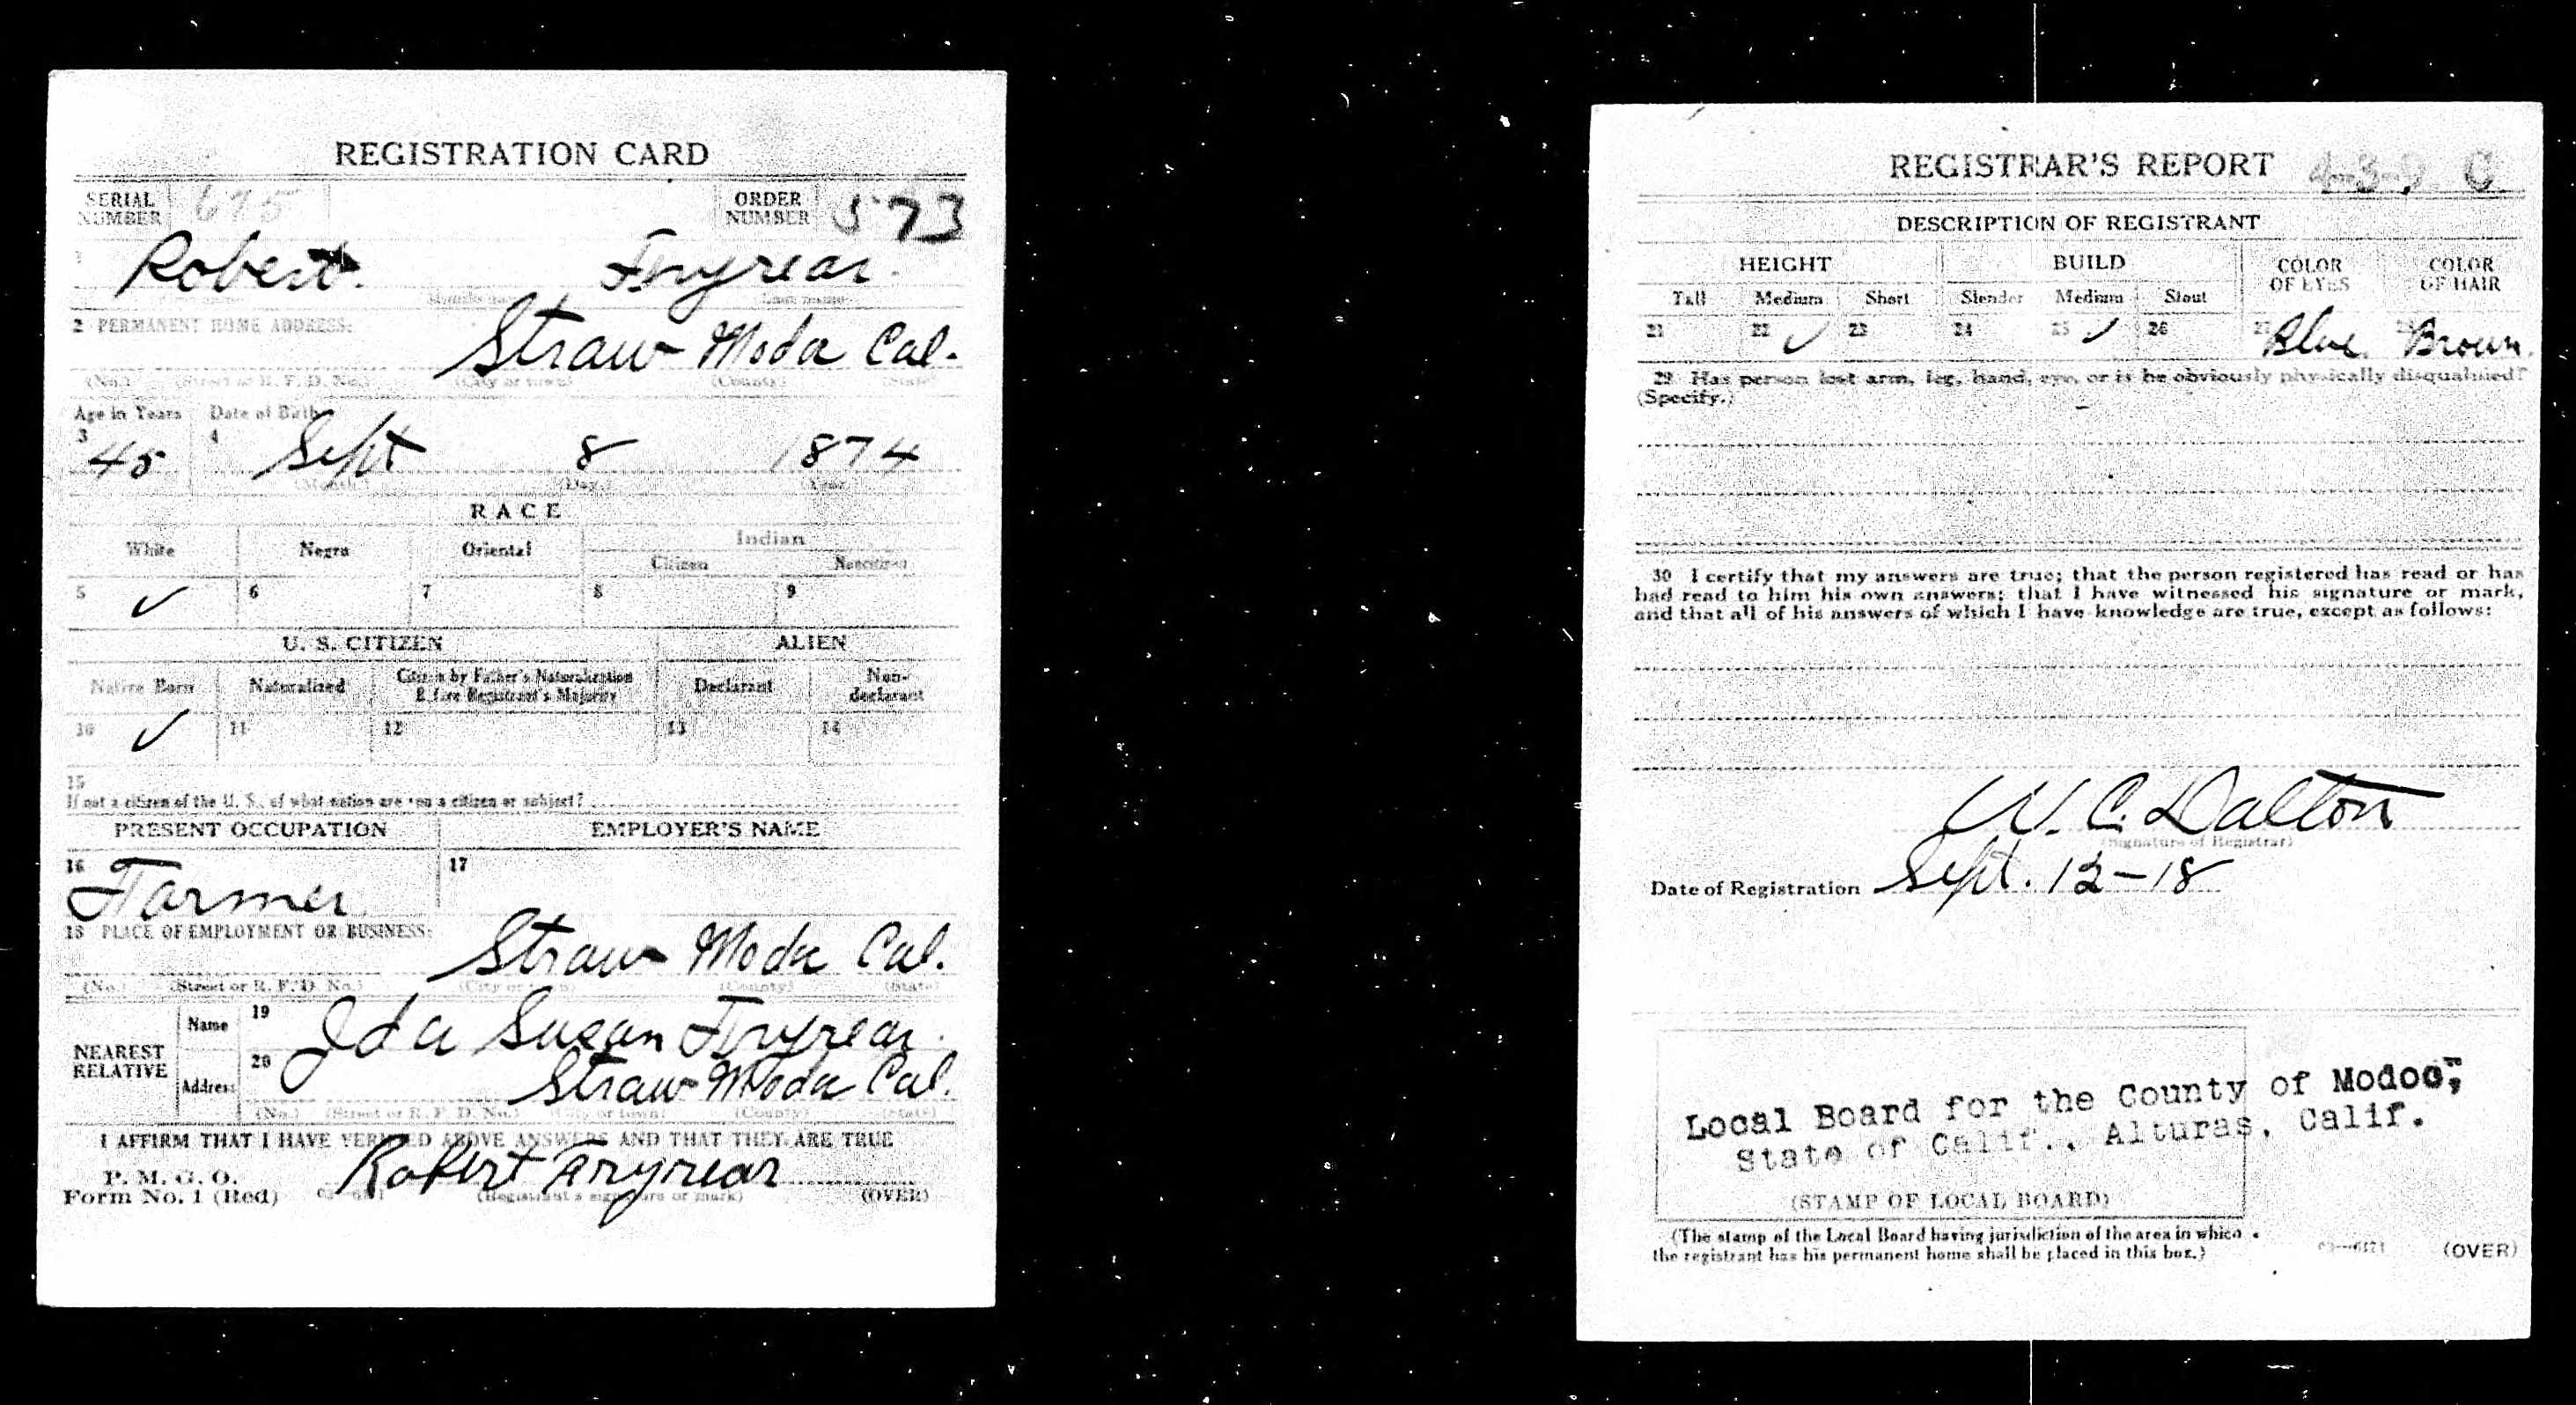 REGISTRATION CARD
SERIAL NUMBER 675 ORDER NUMBER 573
1 Robert Fryrear
First name Middle name Last name
2 PERMANENT HOME ADDRESS:
Straw Moda Cal.
(No.) (Street or R. F. D. No.) (City or town) (County) (State)
Age in Years Date of Birth
3 45 4 Sept 8 1874
(Month.) (Day.) (Year.)
RACE
White Negro Oriental Indian
Citizen Noncitizen
5 ✓ 6 7 8 9
U. S. CITIZEN ALIEN
Native Born Naturalized Citizen by Father's Naturalization Before Registrant's Majority Declarant Non-declarant
10 ✓ 11 12 13 14
15
If not a citizen of the U. S., of what nation are you a citizen or subject?
PRESENT OCCUPATION EMPLOYER'S NAME
16 Farmer 17
18 PLACE OF EMPLOYMENT OR BUSINESS:
Straw Moda Cal.
(No.) (Street or R. F. D. No.) (City or town) (County) (State)
NEAREST RELATIVE Name 19 Ida Susan Fryrear
Address 20 Straw Moda Cal.
(No.) (Street or R. F. D. No.) (City or town) (County) (State)
I AFFIRM THAT I HAVE VERIFIED ABOVE ANSWERS AND THAT THEY ARE TRUE
P. M. G. O.
Form No. 1 (Red) Robert Fryrear
(Registrant's signature or mark) (OVER)
REGISTRAR'S REPORT
DESCRIPTION OF REGISTRANT
HEIGHT BUILD COLOR OF EYES COLOR OF HAIR
Tall Medium Short Slender Medium Stout
21 22 ✓ 23 24 25 ✓ 26 27 Blue 28 Brown
29 Has person lost arm, leg, hand, eye, or is he obviously physically disqualified?
(Specify.)
30 I certify that my answers are true; that the person registered has read or has
had read to him his own answers; that I have witnessed his signature or mark,
and that all of his answers of which I have knowledge are true, except as follows:
W. C. Dalton
(Signature of Registrar)
Date of Registration Sept. 12-18
Local Board for the County of Modoc,
State of Calif., Alturas, Calif.
(STAMP OF LOCAL BOARD)
(The stamp of the Local Board having jurisdiction of the area in which
the registrant has his permanent home shall be placed in this box.)
(OVER)